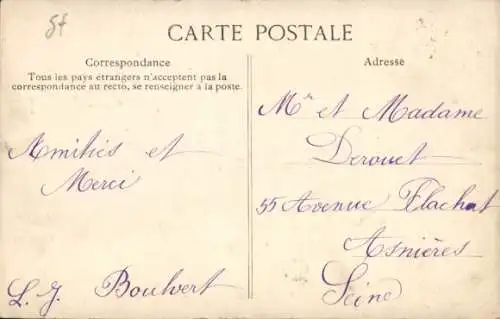 CARTE POSTALE
Correspondance
Tous les pays étrangers n'acceptent pas la
correspondance au recto, se renseigner à la poste.
Amitiés et
Merci
L. J. Boulvert
Adresse
Mr et Madame
Derouet
55 Avenue Flachat
Asnières
Seine